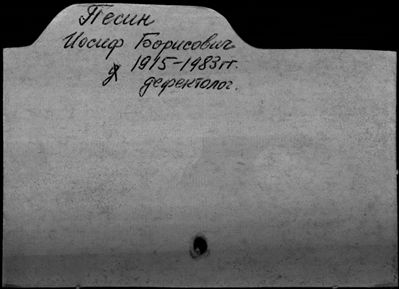 Песин
Иосиф Борисович
1915-1983гг.
дефектолог.